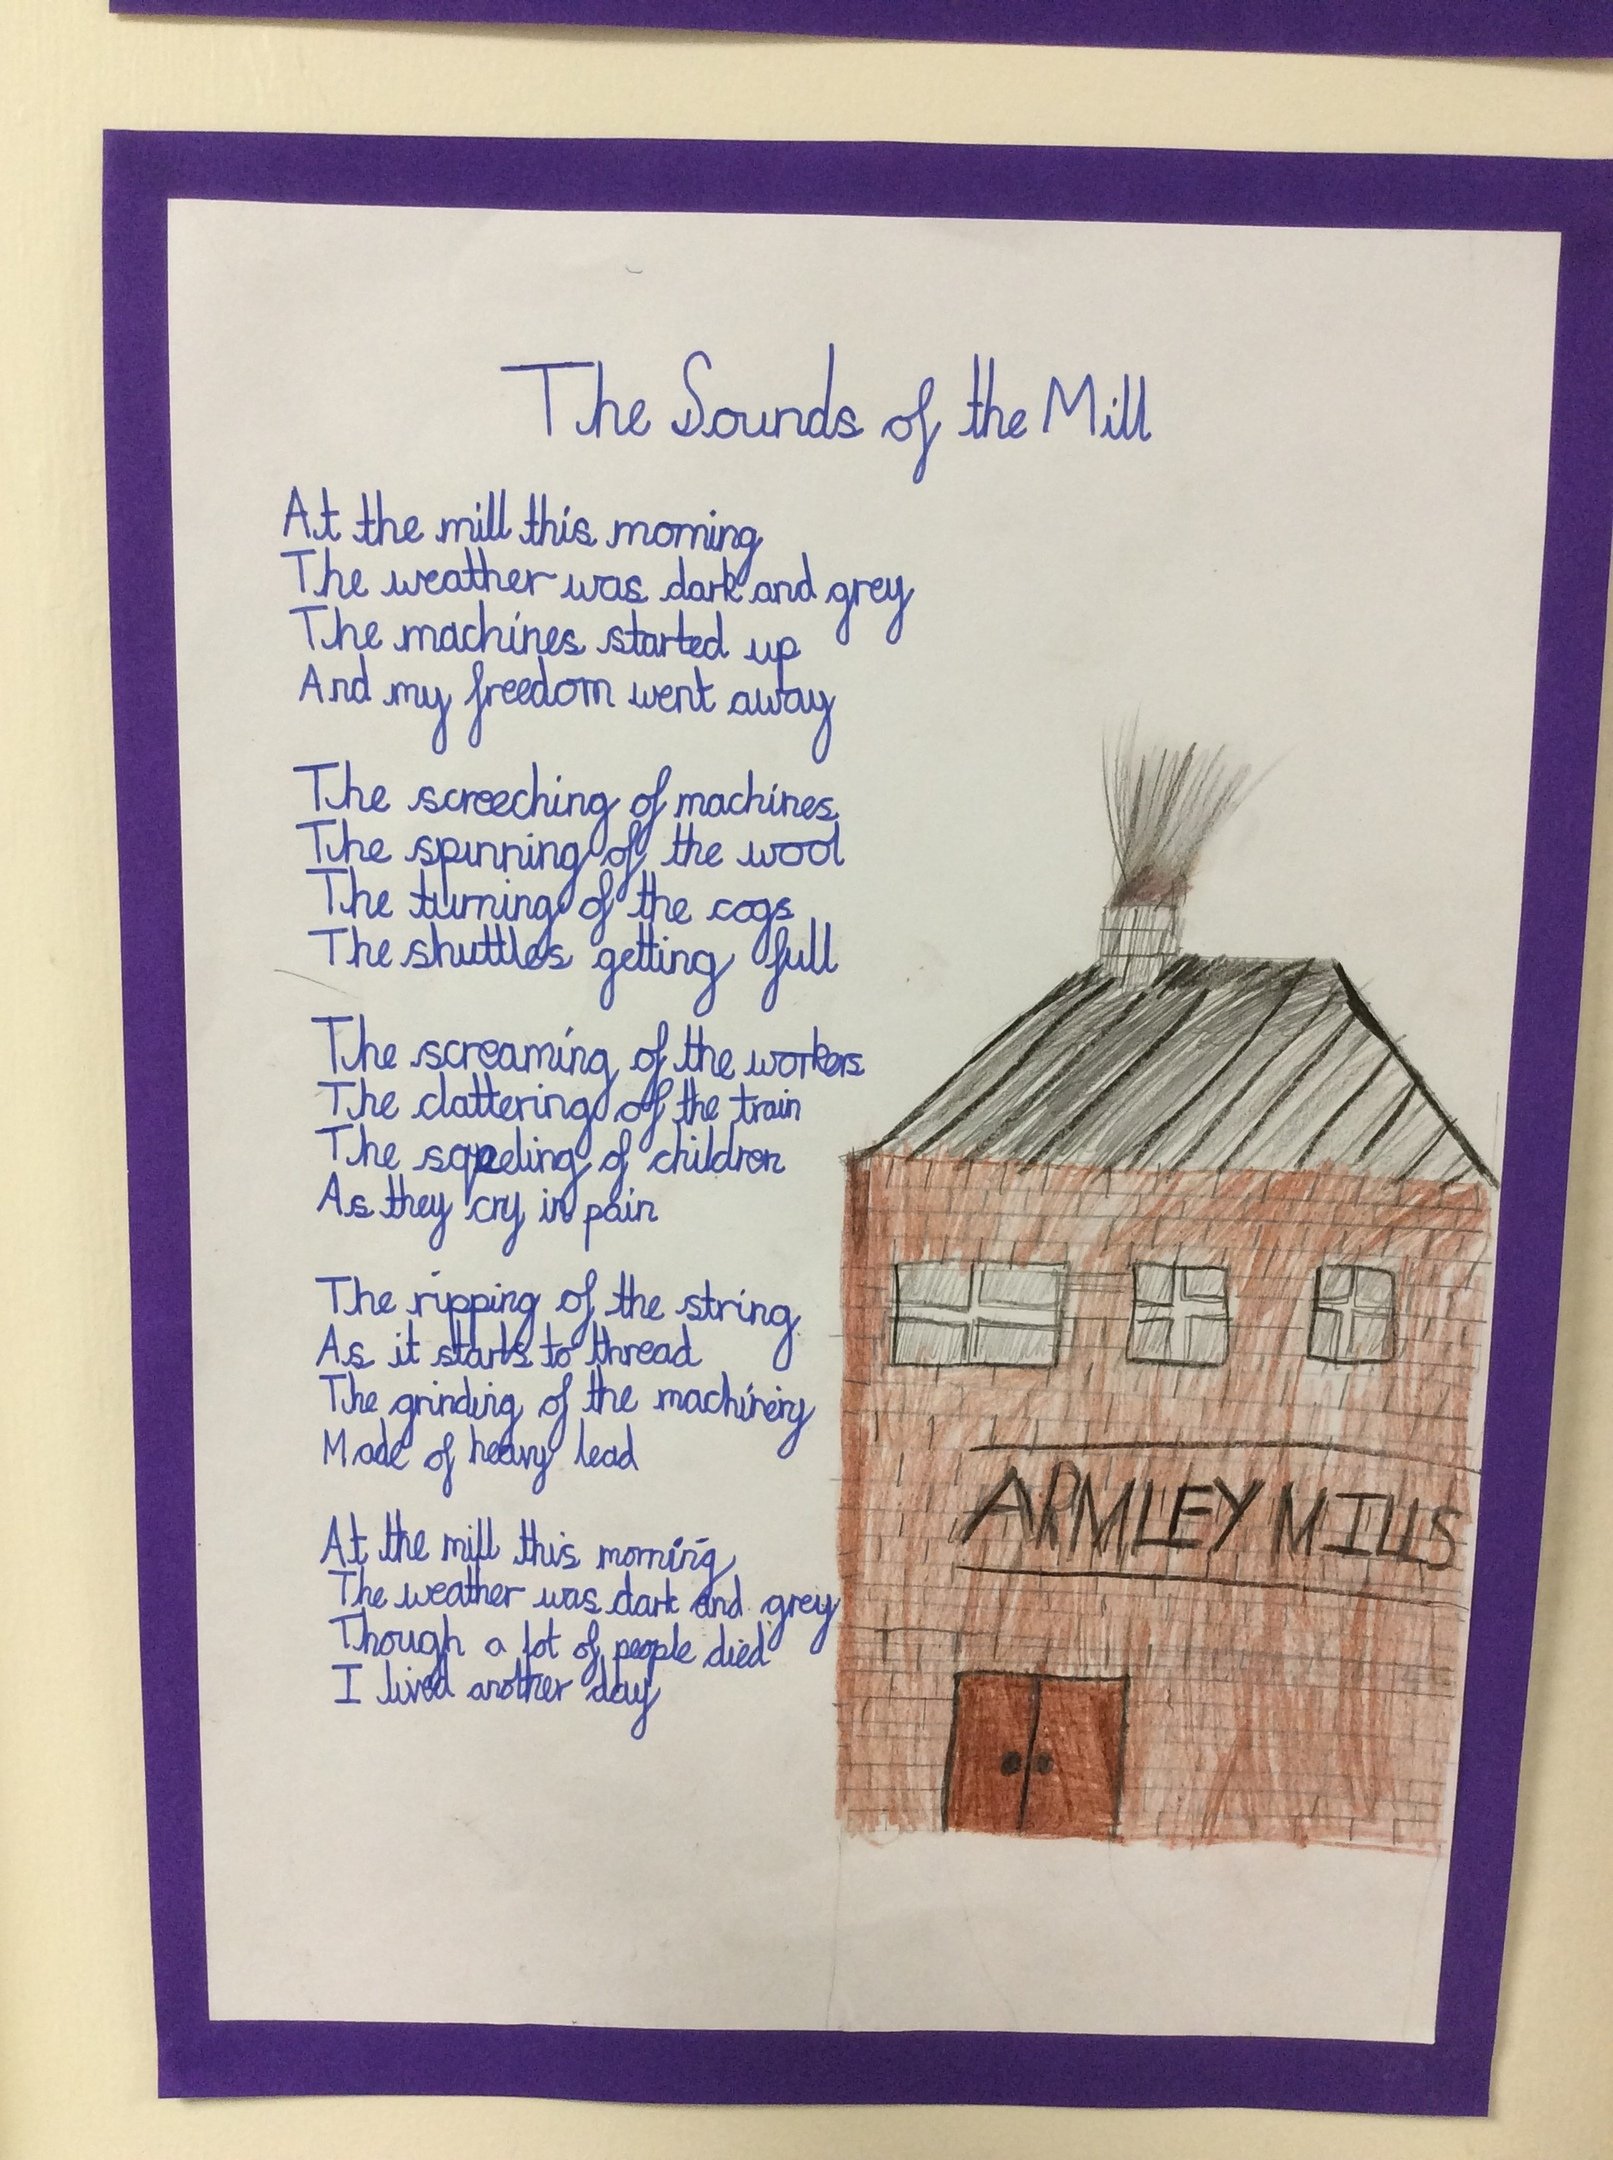 The Sounds of the Mill
At the mill this morning
The weather was dark and grey
The machines started up
And my freedom went away
The screeching of machines
The spinning of the wool
The turning of the cogs
The shuttles getting full
The screaming of the workers
The clattering of the train
The sqeeling of children
As they cry in pain
The ripping of the string
As it starts to thread
The grinding of the machinery
Made of heavy lead
At the mill this morning
The weather was dark and grey
Though a lot of people died
I lived another day
ARMLEY MILLS